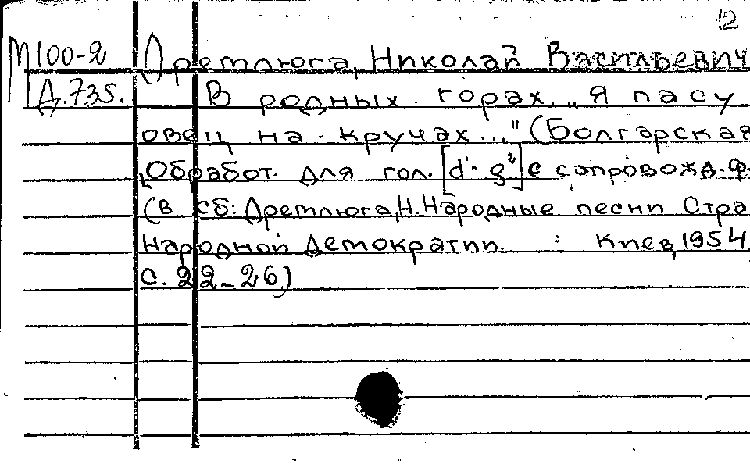 12
М100-2 Дремлюга, Николай Васильевич
Д.735. В родных горах. "Я пасу
овец на кручах..." (Болгарская
Обработ. для гол. [d'-g²] с сопровожд. ф
(в сб: Дремлюга, Н. Народные песни Стра
Народной Демократии : Киев, 1954,
с. 22-26)